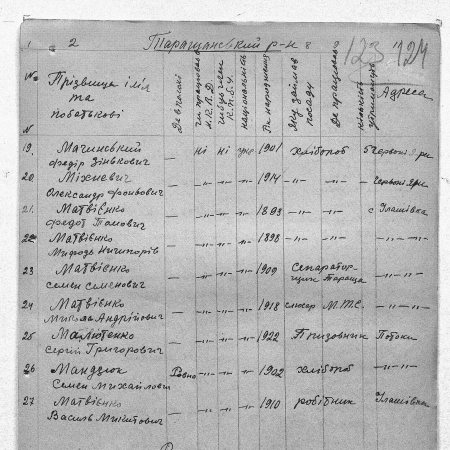 2 Таращанський р-н 123 124
№ Прізвища ім'я та побаткові Де в полоні чи працював Н.К.В.Д. чи був член К.П.б.У. національність Рік народження Яку займав посаду Де працював кількість утриманців Адреса
19. Мачинський Федір Зінькович — ні ні укр. 1901 хлібороб 5 Червоні Яри
20. Міхневич Олександр — " " " 1914 — " — Червоні Яри
21. Матвієнко Федот Панович — " " " 1893 — " — с Улашівка
22. Матвієнко Ничипорів — " " " 1896 — " — — " —
23 Матвієнко Семен Семенович — " " " 1909 Сепаратор- щик Тараща — " —
24 Матвієнко Микола Андрійович — " " " 1918 слюсар М.Т.С. — " —
25 Малютенко Сергій Григорович — " " " 1922 Призовник Потоки
26 Мандзюк Семен Михайлович Ровно " " " 1902 хлібороб — " —
27 Матвієнко Василь Микитович — " " " 1910 робітник Улашівка